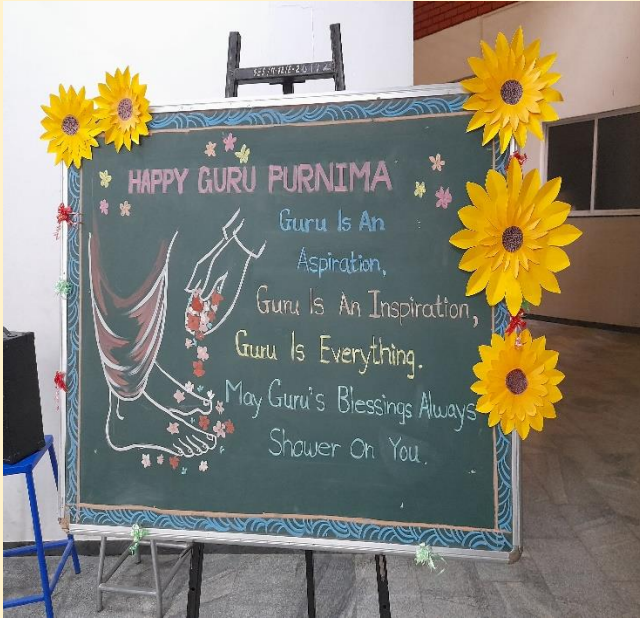 HAPPY GURU PURNIMA
Guru Is An
Aspiration,
Guru Is An Inspiration,
Guru Is Everything.
May Guru's Blessings Always
Shower On You.